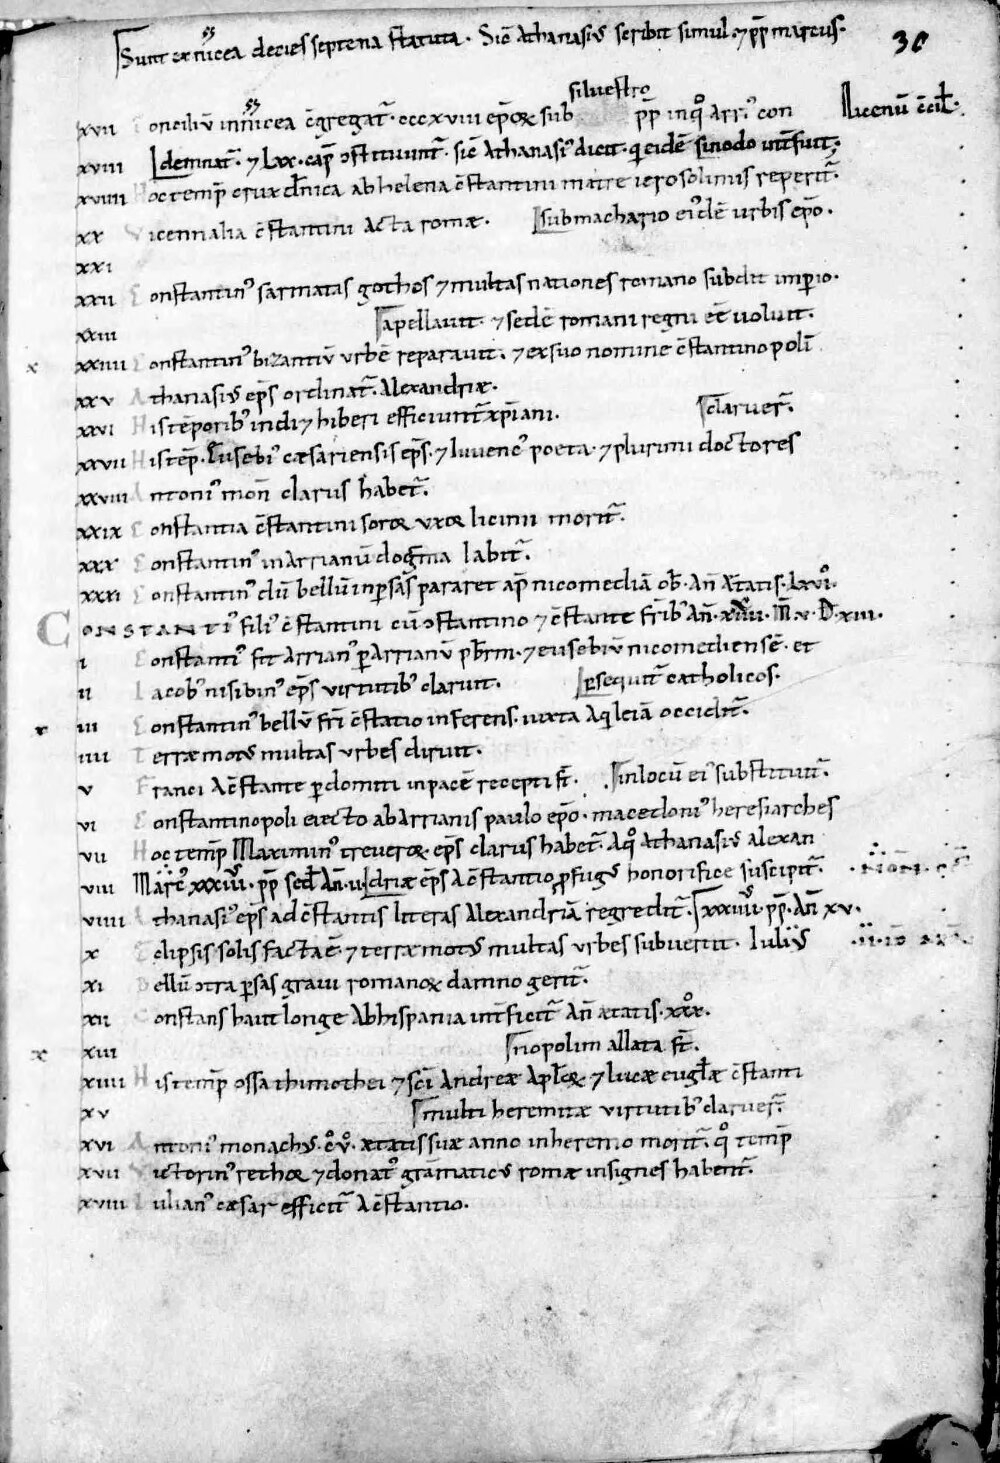 Sunt ex nicea decies septena statuta. Sic̄ Athanasiꝰ scribit simul ⁊ pp̄ marcus.
30
silvestro
xvii Conciliū in nicea c̄gregat̄. cccxviii ep̄oꝝ sub pp̄ in qͦ arr̄ꝰ con Nicenū c̄cił.
xviii demnat̄. ⁊ Lxx. cap̄ ꝯstituunt̄. sic̄ Athanasiꝰ dicit. qͥ eidē sinodo int̄fuit;
xviiii Hoc temp̄ crux dn̄ica ab helena c̄stantini matre ierosolimis reperit̄.
xx Vicennalia c̄stantini acta romæ. sub machario eiꝰdē urbis ep̄o.
xxi
xxii Constantinꝰ sarmatas gothos ⁊ multas nationes romano subdit imꝑio.
xxiii apellavit. ⁊ sedē romani regni eē voluit.
xxiiii Constantinꝰ bizantiū urbē reparavit. ⁊ ex suo nomine c̄stantinopolī
xxv Athanasiꝰ ep̄s ordinat̄. Alexandriæ.
xxvi His tēporibꝰ indi ⁊ hiberi efficiunt̄ xp̄iani. claruer̄.
xxvii His tēp̄. Eusebiꝰ cæsariensis ep̄s. ⁊ Iuvencꝰ poeta. ⁊ plurimi doctores
xxviii Antoniꝰ mon̄ clarus habet̄.
xxix Constantia c̄stantini soror uxor licinii morit̄.
xxx Constantinꝰ in Arrianū dogma labit̄.
xxxi Constantinꝰ dū bellū in ꝑsas pararet ap̄ nicomediā ob̄. An̄ ætatis. Lxvi.
CONSTANTIꝰ filiꝰ c̄stantini cū ꝯstantino ⁊ c̄stante fr̄ibꝰ An̄. xxiiii.
i Constantiꝰ fit Arrianꝰ ꝑ Arrianū pb̄rm. ⁊ eusebiū nicomediensē. et
ii Iacobꝰ nisibinꝰ ep̄s virtutibꝰ claruit. ꝑsequit̄ catholicos.
iii Constantinꝰ bellū fr̄i c̄statio inferens. iuxta Aqͥleiā occidit̄.
iiii Terræ motꝰ multas urbes diruit.
v Franci A c̄stante ꝑdomiti in pacē recepti st̄. in locū eiꝰ substituit̄.
vi Constantinopoli eiecto ab Arrianis paulo ep̄o. macedoniꝰ heresiarches
vii Hoc temp̄ Maximinꝰ treveroꝝ. ep̄s clarus habet̄. A qͦ Athanasiꝰ alexan
viii Marcꝰ xxxiiii. pp̄ sed̄ An̄. ii. driæ ep̄s A c̄stantio ꝓfugꝰ honorifice suscipit̄.
viiii Athanasiꝰ ep̄s ad c̄stantis literas Alexandriā regredit̄. xxxiiii. pp̄. An̄ xv.
x Eclipsis solis facta ē. ⁊ terræ motꝰ multas urbes subvertit. Iuliꝰ
xi Bellū ꝯtra ꝑsas gravi romanoꝝ damno gerit̄.
xii Constans haut longe Ab hispania int̄ficit̄ An̄ ætatis. xxx.
xiii nopolim allata st̄.
xiiii His temp̄ ossa thimothei ⁊ sc̄i Andreæ Apl̄oꝝ ⁊ lucæ eugl̄æ c̄stanti
xv multi heremitæ virtutibꝰ claruer̄.
xvi Antoniꝰ monachꝰ. cͦvͦ. ætatis suæ anno in heremo morit̄. qͦ temp̄
xvii Victorinꝰ rethor ⁊ donatꝰ grāmaticꝰ romæ insignes habent̄.
xviii Iulianꝰ cæsar efficit̄ A c̄stantio.